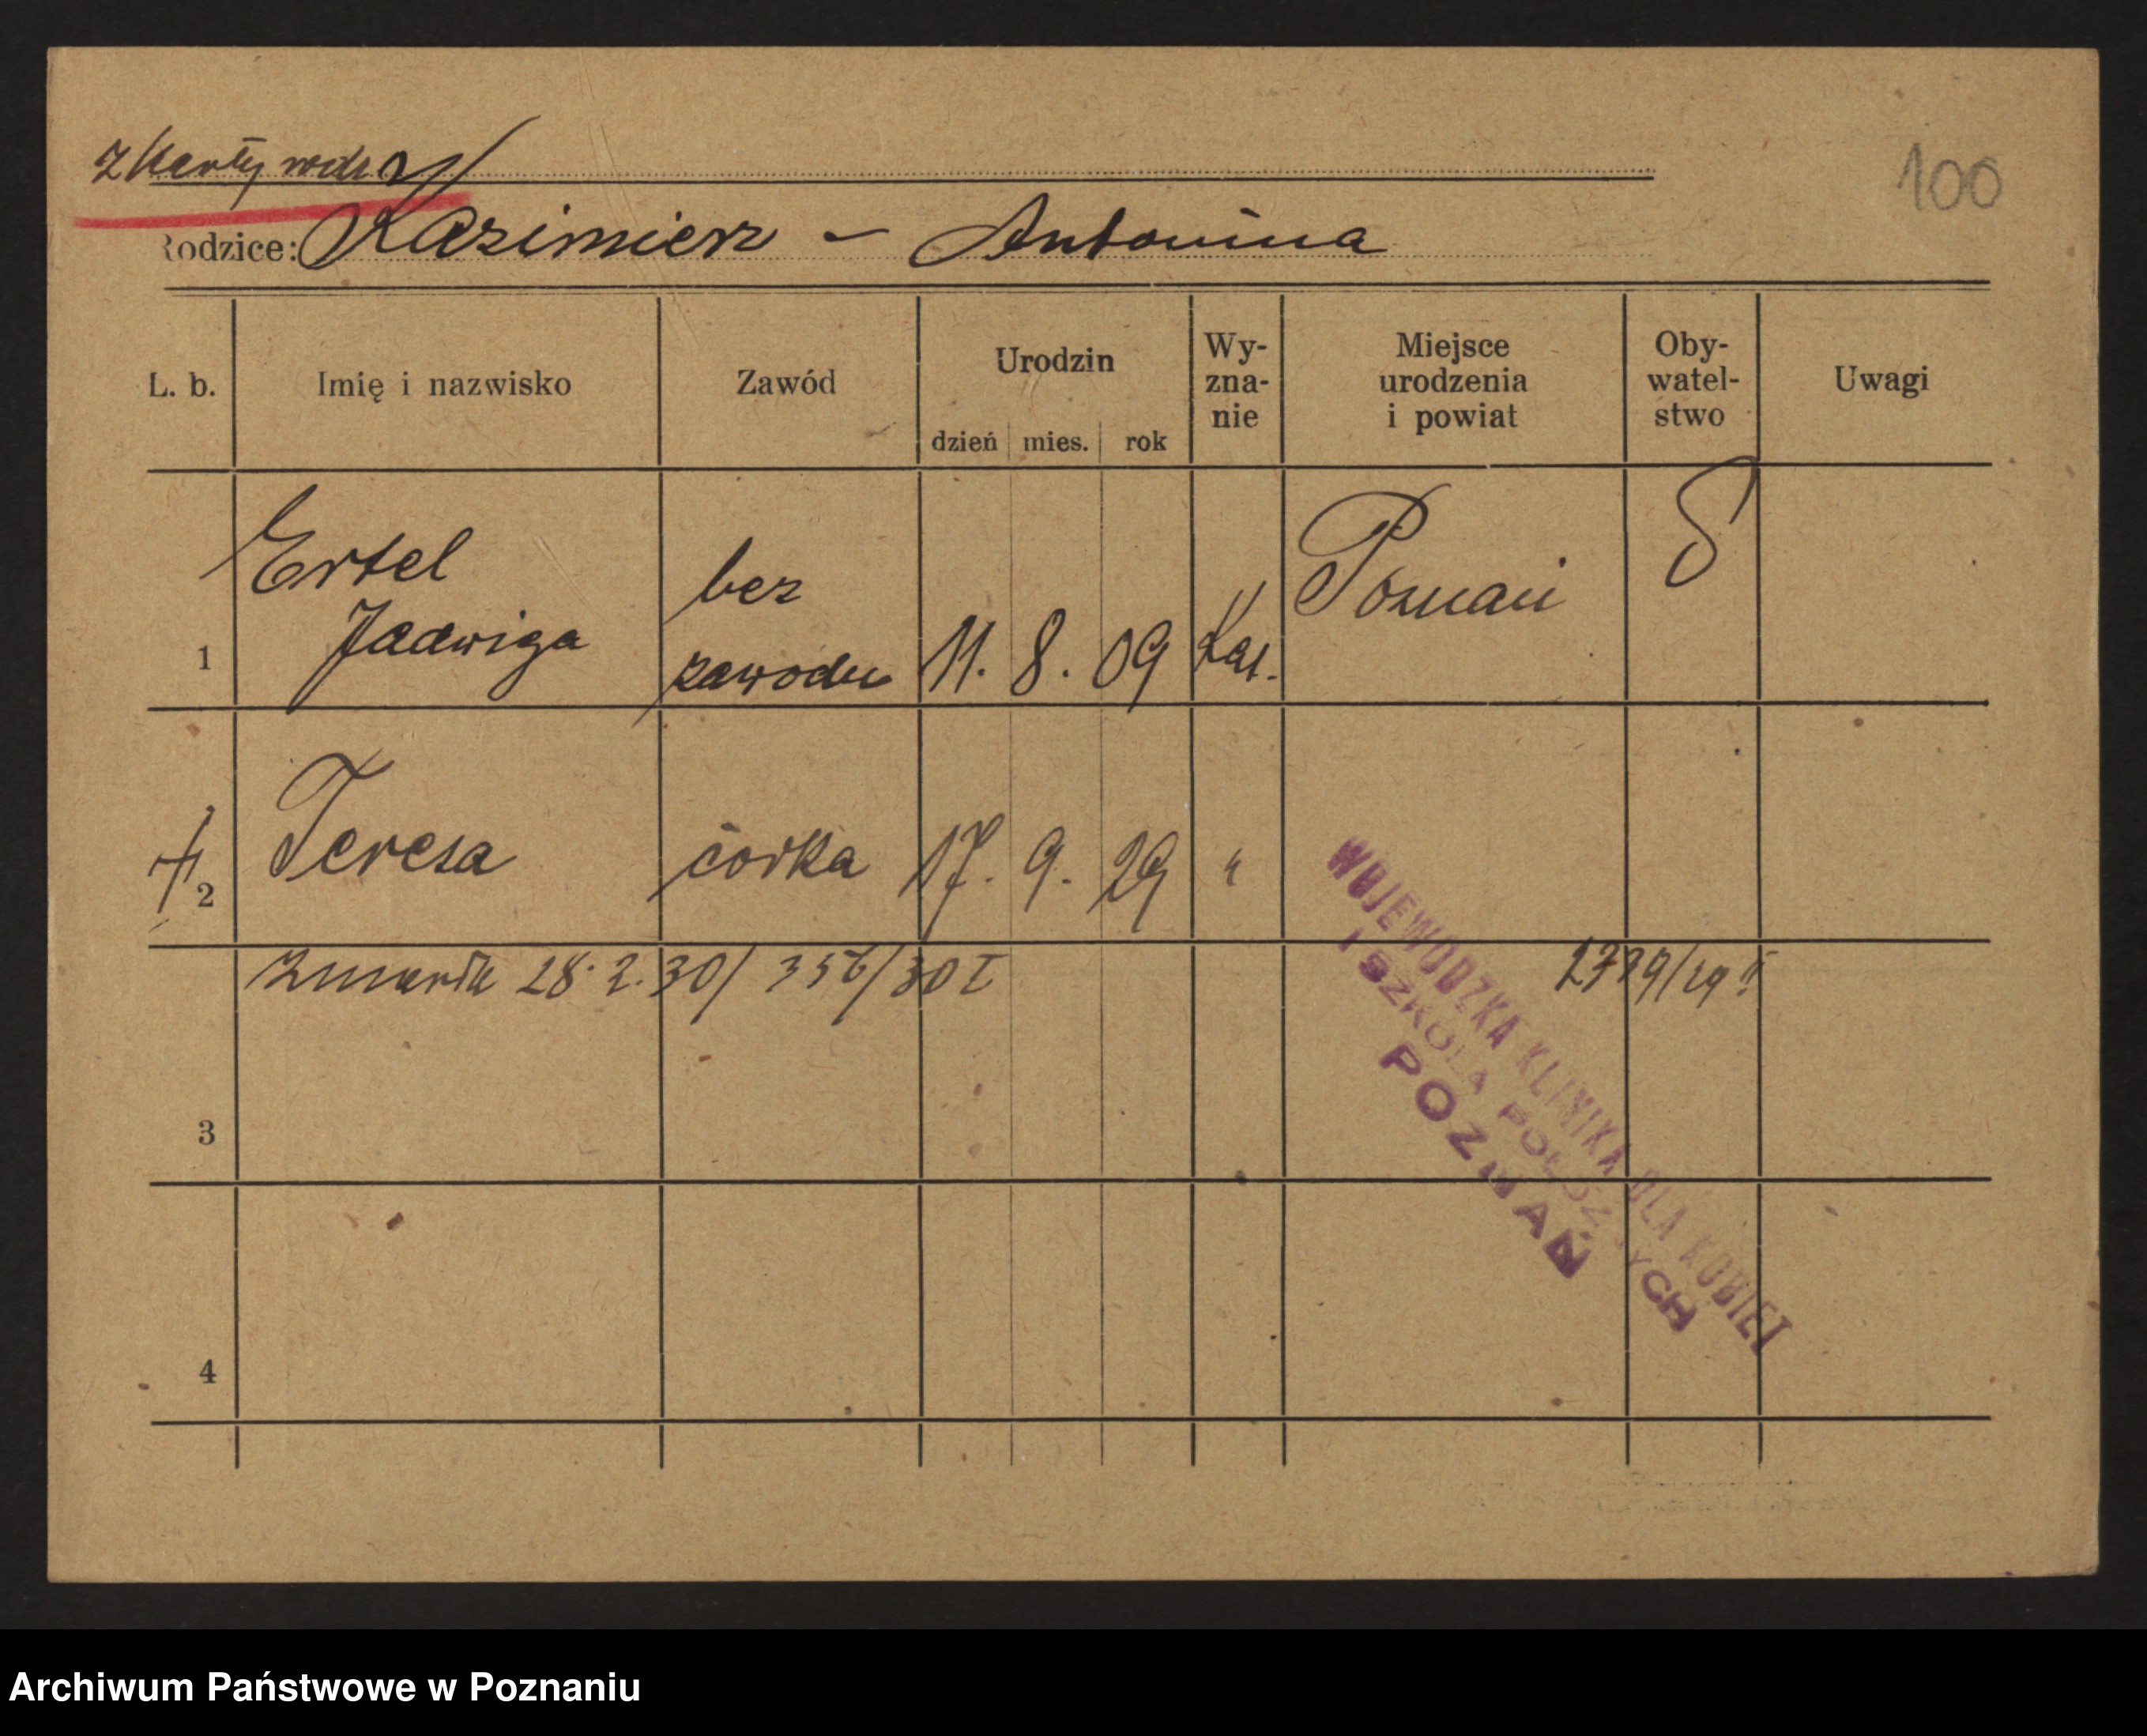 z karty rodz
100
Rodzice: Kazimierz – Antonina
L. b.
Imię i nazwisko
Zawód
Urodzin
dzień mies. rok
Wy-
zna-
nie
Miejsce
urodzenia
i powiat
Oby-
watel-
stwo
Uwagi
Ertel
Jadwiga
1
bez
zawodu
11. 8. 09
Kat.
Poznań
Teresa
2
córka
17. 9. 29
"
zmarła 28.2.30/ 356/30 I
2789/29 II
3
4
WOJEWÓDZKA KLINIKA DLA KOBIET
I SZKOŁA POŁOŻNYCH
POZNAŃ
Archiwum Państwowe w Poznaniu